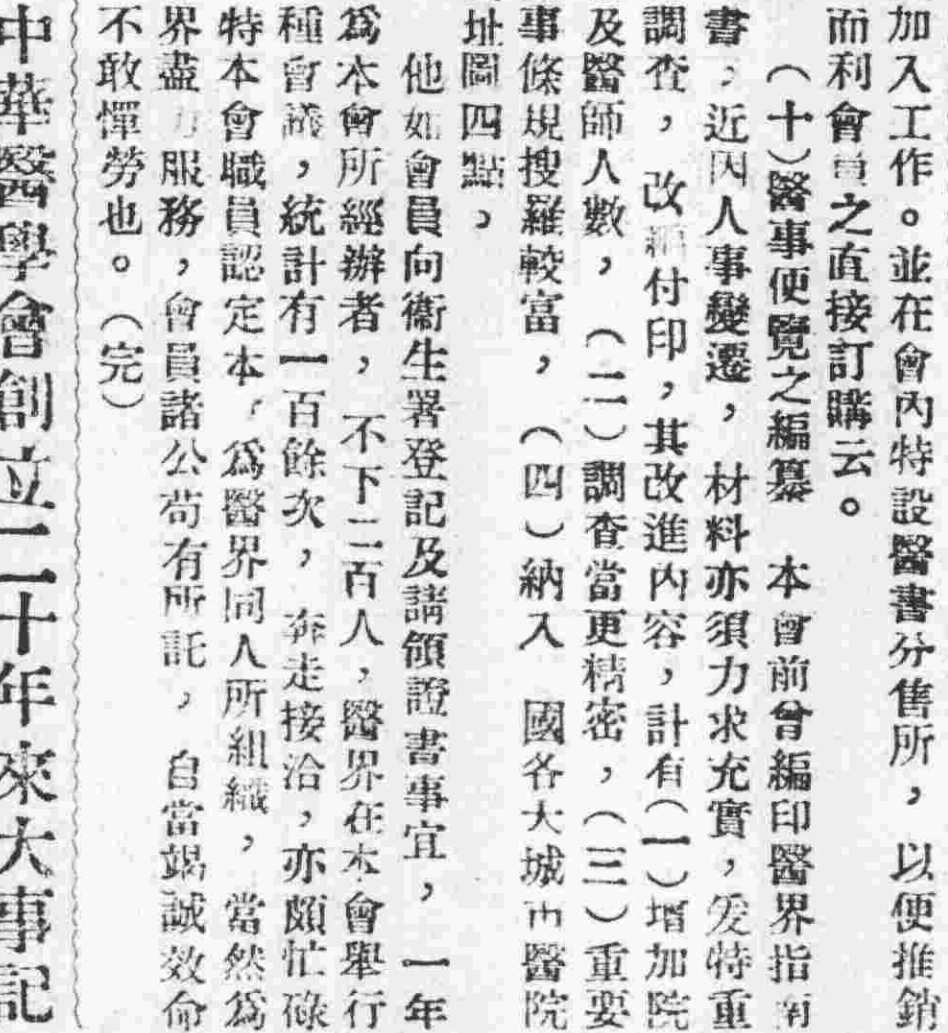 加入工作。並在會內特設醫書分售所，以便推銷
而利會員之直接訂購云。
（十）醫事便覽之編纂　本會前曾編印醫界指南
書，近因人事變遷，材料亦須力求充實，爰特重
調查，改編付印，其改進內容，計有（一）增加院
及醫師人數，（二）調查當更精密，（三）重要
事條規搜羅較富，（四）納入　國各大城市醫院
址圖四點，
他如會員向衞生署登記及請領證書事宜，一年
爲本會所經辦者，不下二百人，醫界在本會舉行
種會議，統計有一百餘次，奔走接洽，亦頗忙碌
特本會職員認定本，爲醫界同人所組織，當然爲
界盡力服務，會員諸公苟有所託，自當竭誠效命
不敢憚勞也。（完）
中華醫學會創立二十年來大事記